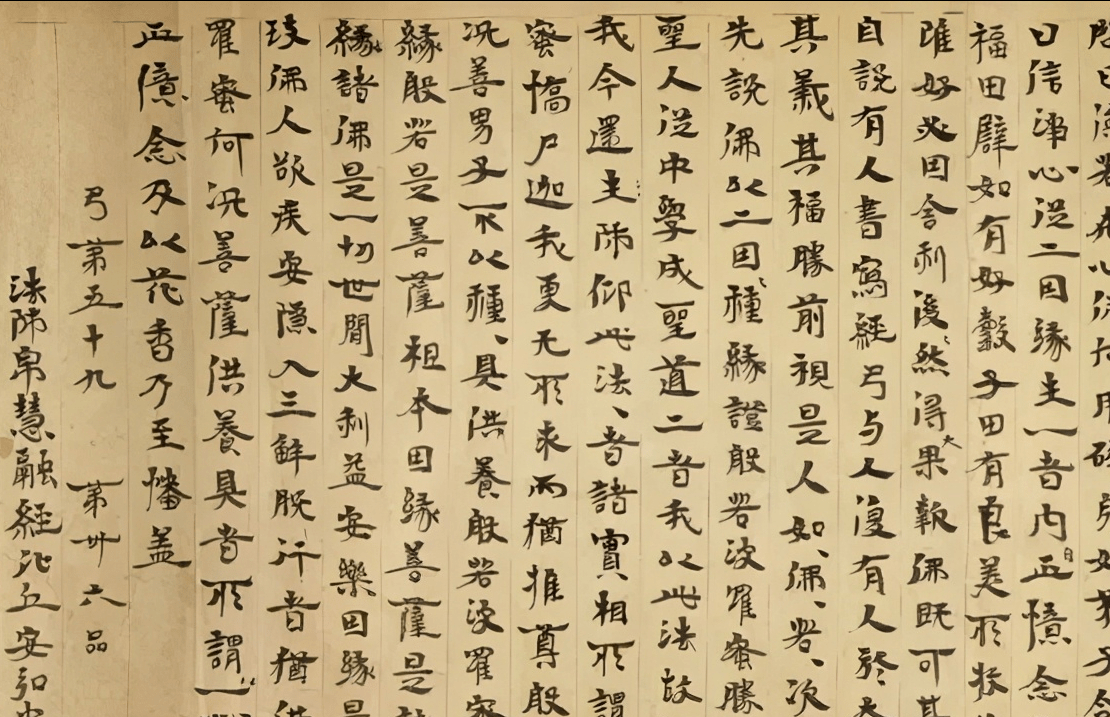 曰信淨心從二因緣生一者內正憶念
福田譬如有好穀子田有良美所收
唯好必因舍利後、然得大果報佛既可其
自說有人書寫經弓与人復有人於大
其義其福勝前視是人如、佛、若、次
先說佛以二因、種、緣證般若波羅蜜勝
聖人從中學成聖道二者我以此法故
我今還主師仰此法、者諸實相所謂
蜜憍尸迦我更无所求而猶推尊般
況善男子而不以種、具洪養般若波羅蜜
緣般若是菩薩祖本因緣菩薩是
緣諸佛是一切世間大利益安樂因緣是
故佛人欲疾安隱入三解脫行者猶洪
羅蜜何況菩薩洪養具者所謂一
正憶念及以花香乃至幡盖
弓第五十九 第卅六品
法師帛慧融經比丘安弘